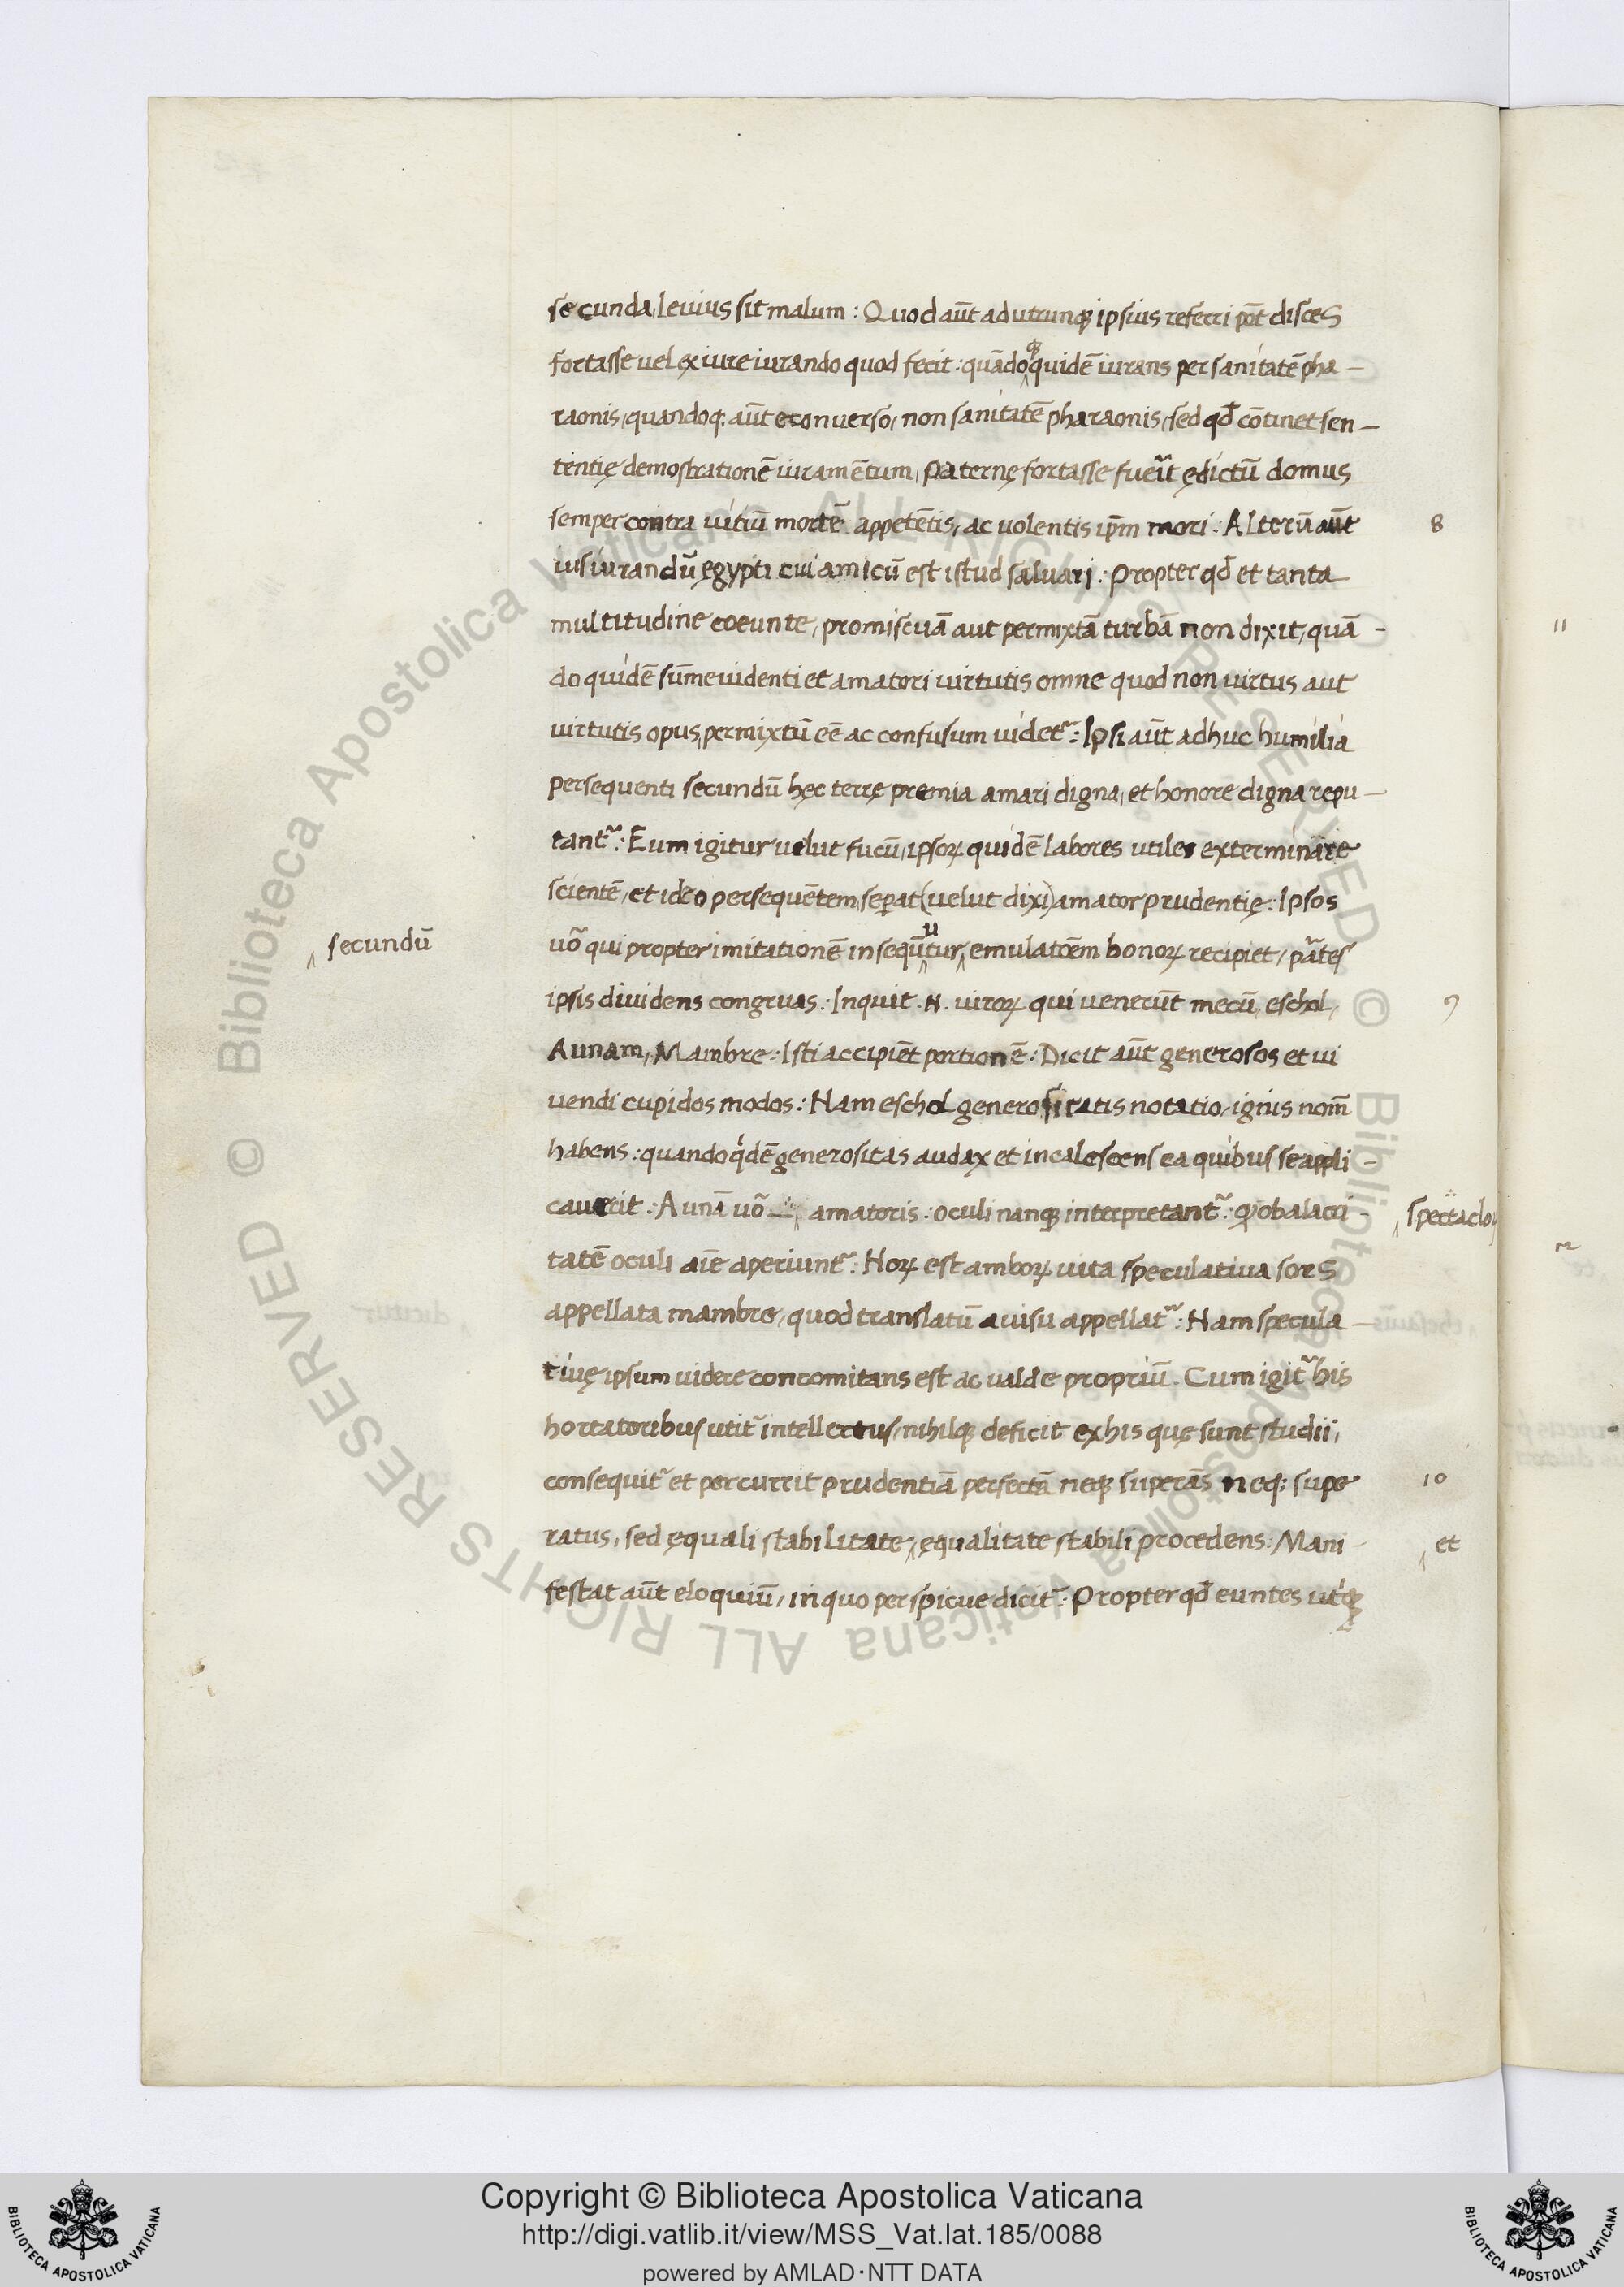 secunda, leuius sit malum : Quod aūt ad utrunqȝ ipsius referri pōt disces
fortasse uel ex iure iurando quod fecit : quādo qȝ quidē iurans per sanitatē pha-
raonis, quandoqȝ aūt econuerso, non sanitatē pharaonis, sed qđ cōtinet sen-
tentię demostrationē iuramētum, Paternę fortasse fuerit ędictū domus
semper contra uitiū mortē appetētis, ac uolentis ip̄m mori : Alterū aūt
8
iusiurandū ęgypti cui amicū est istud saluari : Propter qđ et tanta
multitudine coeunte, promiscuā aut permixtā turbā non dixit, quā-
do quidē sūme uidenti et amatori uirtutis omne quod non uirtus aut
uirtutis opus, permixtū eē ac confusum uidet᷑ : Ipsi aūt adhuc humilia
persequenti secundū hęc terrę premia amari digna, et honore digna repu-
tant᷑ : Eum igitur uelut fucū, ipsoꝝ quidē labores utiles exterminare
scientē, et ideo persequētem, seꝑat (uelut dixi) amator prudentię : Ipsos
secundū
uō qui propter imitationē insequūtur, emulatōem bonoꝝ recipiet, ptes
ipsis diuidens congruas : Inquit .N. uiroꝝ qui uenerūt mecū, eschol,
9
Aunam, Mambre : Isti accipiēt portionē : Dicit aūt generosos et ui
uendi cupidos modos : Nam eschol generositatis notatio, ignis nom̄
habens : quando qdē generositas audax et incalescens ea quibus se appli-
cauerit : Aunā uō amatoris : oculi nanqȝ interpretant᷑ : qꝫ ob alacri-
tatē oculi aīe aperiunt᷑ : Hoꝝ est amboꝝ uita speculatiua sors
appellata mambre, quod translatū a uisu appellat᷑ : Nam specula-
tiuę ipsum uidere concomitans est ac ualde propriū. Cum igit᷑ his
hortatoribus utit᷑ intellectus, nihilqȝ deficit ex his quę sunt studii,
consequit᷑ et percurrit prudentiā perfectā neqȝ superās neqȝ supe
10
ratus, sed ęquali stabilitate, ęqualitate stabili procedens : Mani-
et
festat aūt eloquiū, in quo perspicue dicit᷑ : Propter qđ euntes utiqȝ
11
BIBLIOTECA APOSTOLICA VATICANA
Copyright © Biblioteca Apostolica Vaticana
http://digi.vatlib.it/view/MSS_Vat.lat.185/0088
powered by AMLAD·NTT DATA
BIBLIOTECA APOSTOLICA VATICANA
© Biblioteca Apostolica Vaticana ALL RIGHTS RESERVED © Biblioteca Apostolica Vaticana ALL RIGHTS RESERVED